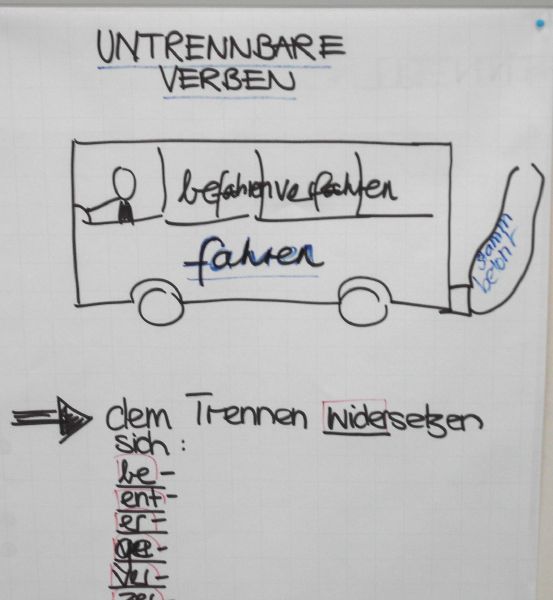 UNTRENNBARE
VERBEN
befahren verfahren
fahren
stamm
betont
dem Trennen widersetzen
sich:
be-
ent-
er-
ge-
ver-
zer-